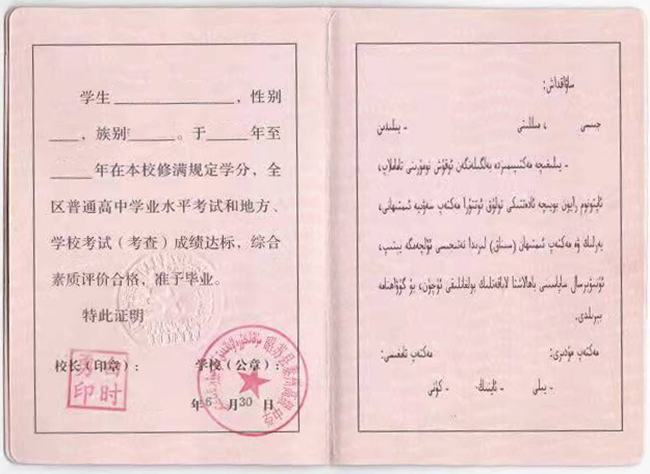 学生＿＿＿＿＿＿，性别
＿＿，族别＿＿＿。于＿＿年至
＿＿年在本校修满规定学分，全
区普通高中学业水平考试和地方、
学校考试（考查）成绩达标，综合
素质评价合格，准予毕业。
特此证明
校长（印章）： 学校（公章）：
年6月30日
印时
昭苏县 高级中学
ساۋاقداش:
جىسى ، مىللىتى - يىلىدىن
- يىلىغىچە مەكتىپىمىزدە بەلگىلەنگەن ئوقۇش نومۇرىنى تاماملاپ،
ئاپتونوم رايون بويىچە ئادەتتىكى تولۇق ئوتتۇرا مەكتەپ سەۋىيە ئىمتىھانى،
يەرلىك ۋە مەكتەپ ئىمتىھان (سىناق) لىرىدا نەتىجىسى ئۆلچەمگە يېتىپ،
ئۇنىۋېرسال ساپاسىنى باھالاشتا لاياقەتلىك بولغانلىقى ئۈچۈن، بۇ گۇۋاھنامە
بېرىلدى.
مەكتەپ مۇدىرى: مەكتەپ تامغىسى:
- يىلى - ئاينىڭ - كۈنى